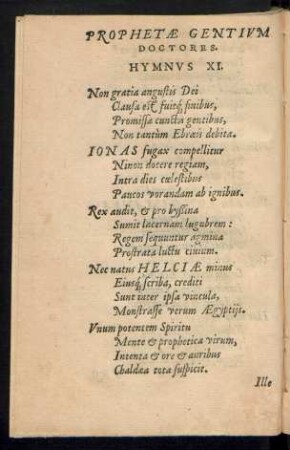 PROPHETÆ GENTIVM
DOCTORES.
HYMNVS XI.
Non gratia angustis Dei
Clausa est, fuitq́, finibus,
Promissa cunctis gentibus,
Non tantùm Ebræis debita.
IONAS fugax compellitur
Ninon docere regiam,
Intra dies cœlestibus
Paucos vorandam ab ignibus.
Rex audit, & pro byssina
Sumit lacernam lugubrem:
Regem sequuntur agmina
Prostrata luctu ciuium.
Nec natus HELCIÆ minus
Eiusq́, scriba, crediti
Sunt inter ipsa vincula,
Monstrasse verum Ægyptijs.
Vnum potentem Spiritu
Mente & prophetica virum,
Intenta & ore & auribus
Chaldæa tota suspicit.
Ille